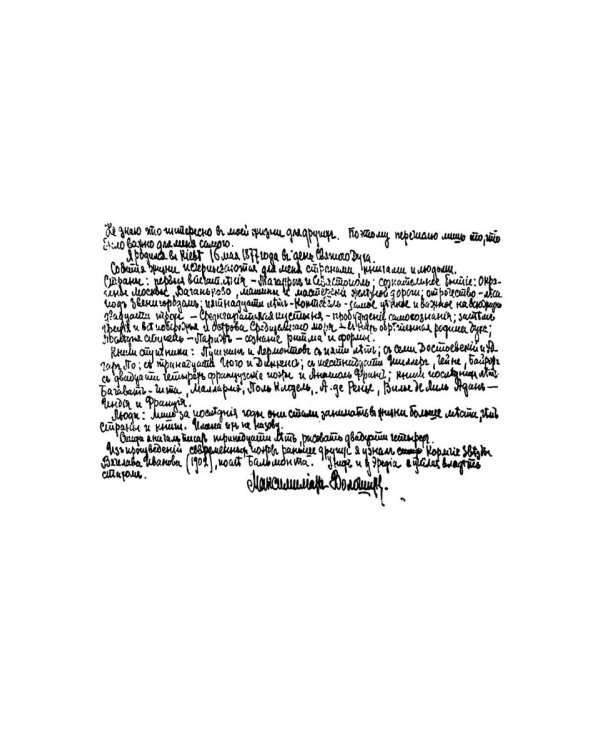 Не знаю что интересно въ моей жизни для другихъ. Поэтому перечислю лишь то, что
было важно для меня самого.
Я родился въ Кіевѣ 16 мая 1877 года въ день Святого Духа.
Событія жизни исчерпываются для меня странами, книгами и людьми.
Страны: первыя впечатлѣнія – Таганрогъ и Севастополь; сознательное бытіе: Окра-
ины Москвы, Ваганьково, машины и мастерскія желѣзной дороги; отрочество – лѣса
подъ Звенигородомъ; пятнадцати лѣтъ – Коктебель – самое цѣнное и важное на всю жизнь;
двадцати трехъ – Среднеазіатская пустыня – пробужденіе самосознанія; затѣмъ
Греція и всѣ побережья и острова Средиземнаго моря – въ нихъ обрѣтенная родина духа;
последняя ступень – Парижъ – сознаніе ритма и формы.
Книги спутники: Пушкинъ и Лермонтовъ съ пяти лѣтъ; съ семи Достоевскій и Эд-
гаръ По; съ тринадцати Гюго и Диккенсъ; съ шестнадцати Шиллеръ, Гейне, Байронъ;
съ двадцати четырехъ французскіе поэты и Анатоль Франсъ; книги последнихъ лѣтъ:
Багаватъ-Гита, Маллармэ, Поль Клодель, А. де Ренье, Вилье де Лиль Аданъ –
Индія и Франція.
Люди: Лишь за последніе годы они стали занимать въ жизни больше мѣста, чѣмъ
страны и книги. Имена ихъ не назову.
Стихи я началъ писать тринадцати лѣтъ, рисовать двадцати четырехъ.
Изъ произведеній современныхъ поэтовъ раньше другихъ я узналъ Кормчія Звѣзды
Вячеслава Иванова (1902), послѣ Бальмонта. У нихъ и у Эредіа я учился владѣть
стихомъ.
Максимиліанъ Волошинъ.